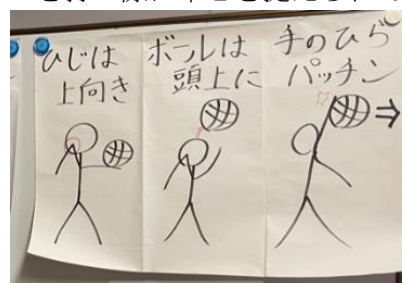 ひじは
上向き
ボールは
頭上に
手のひら
パッチン